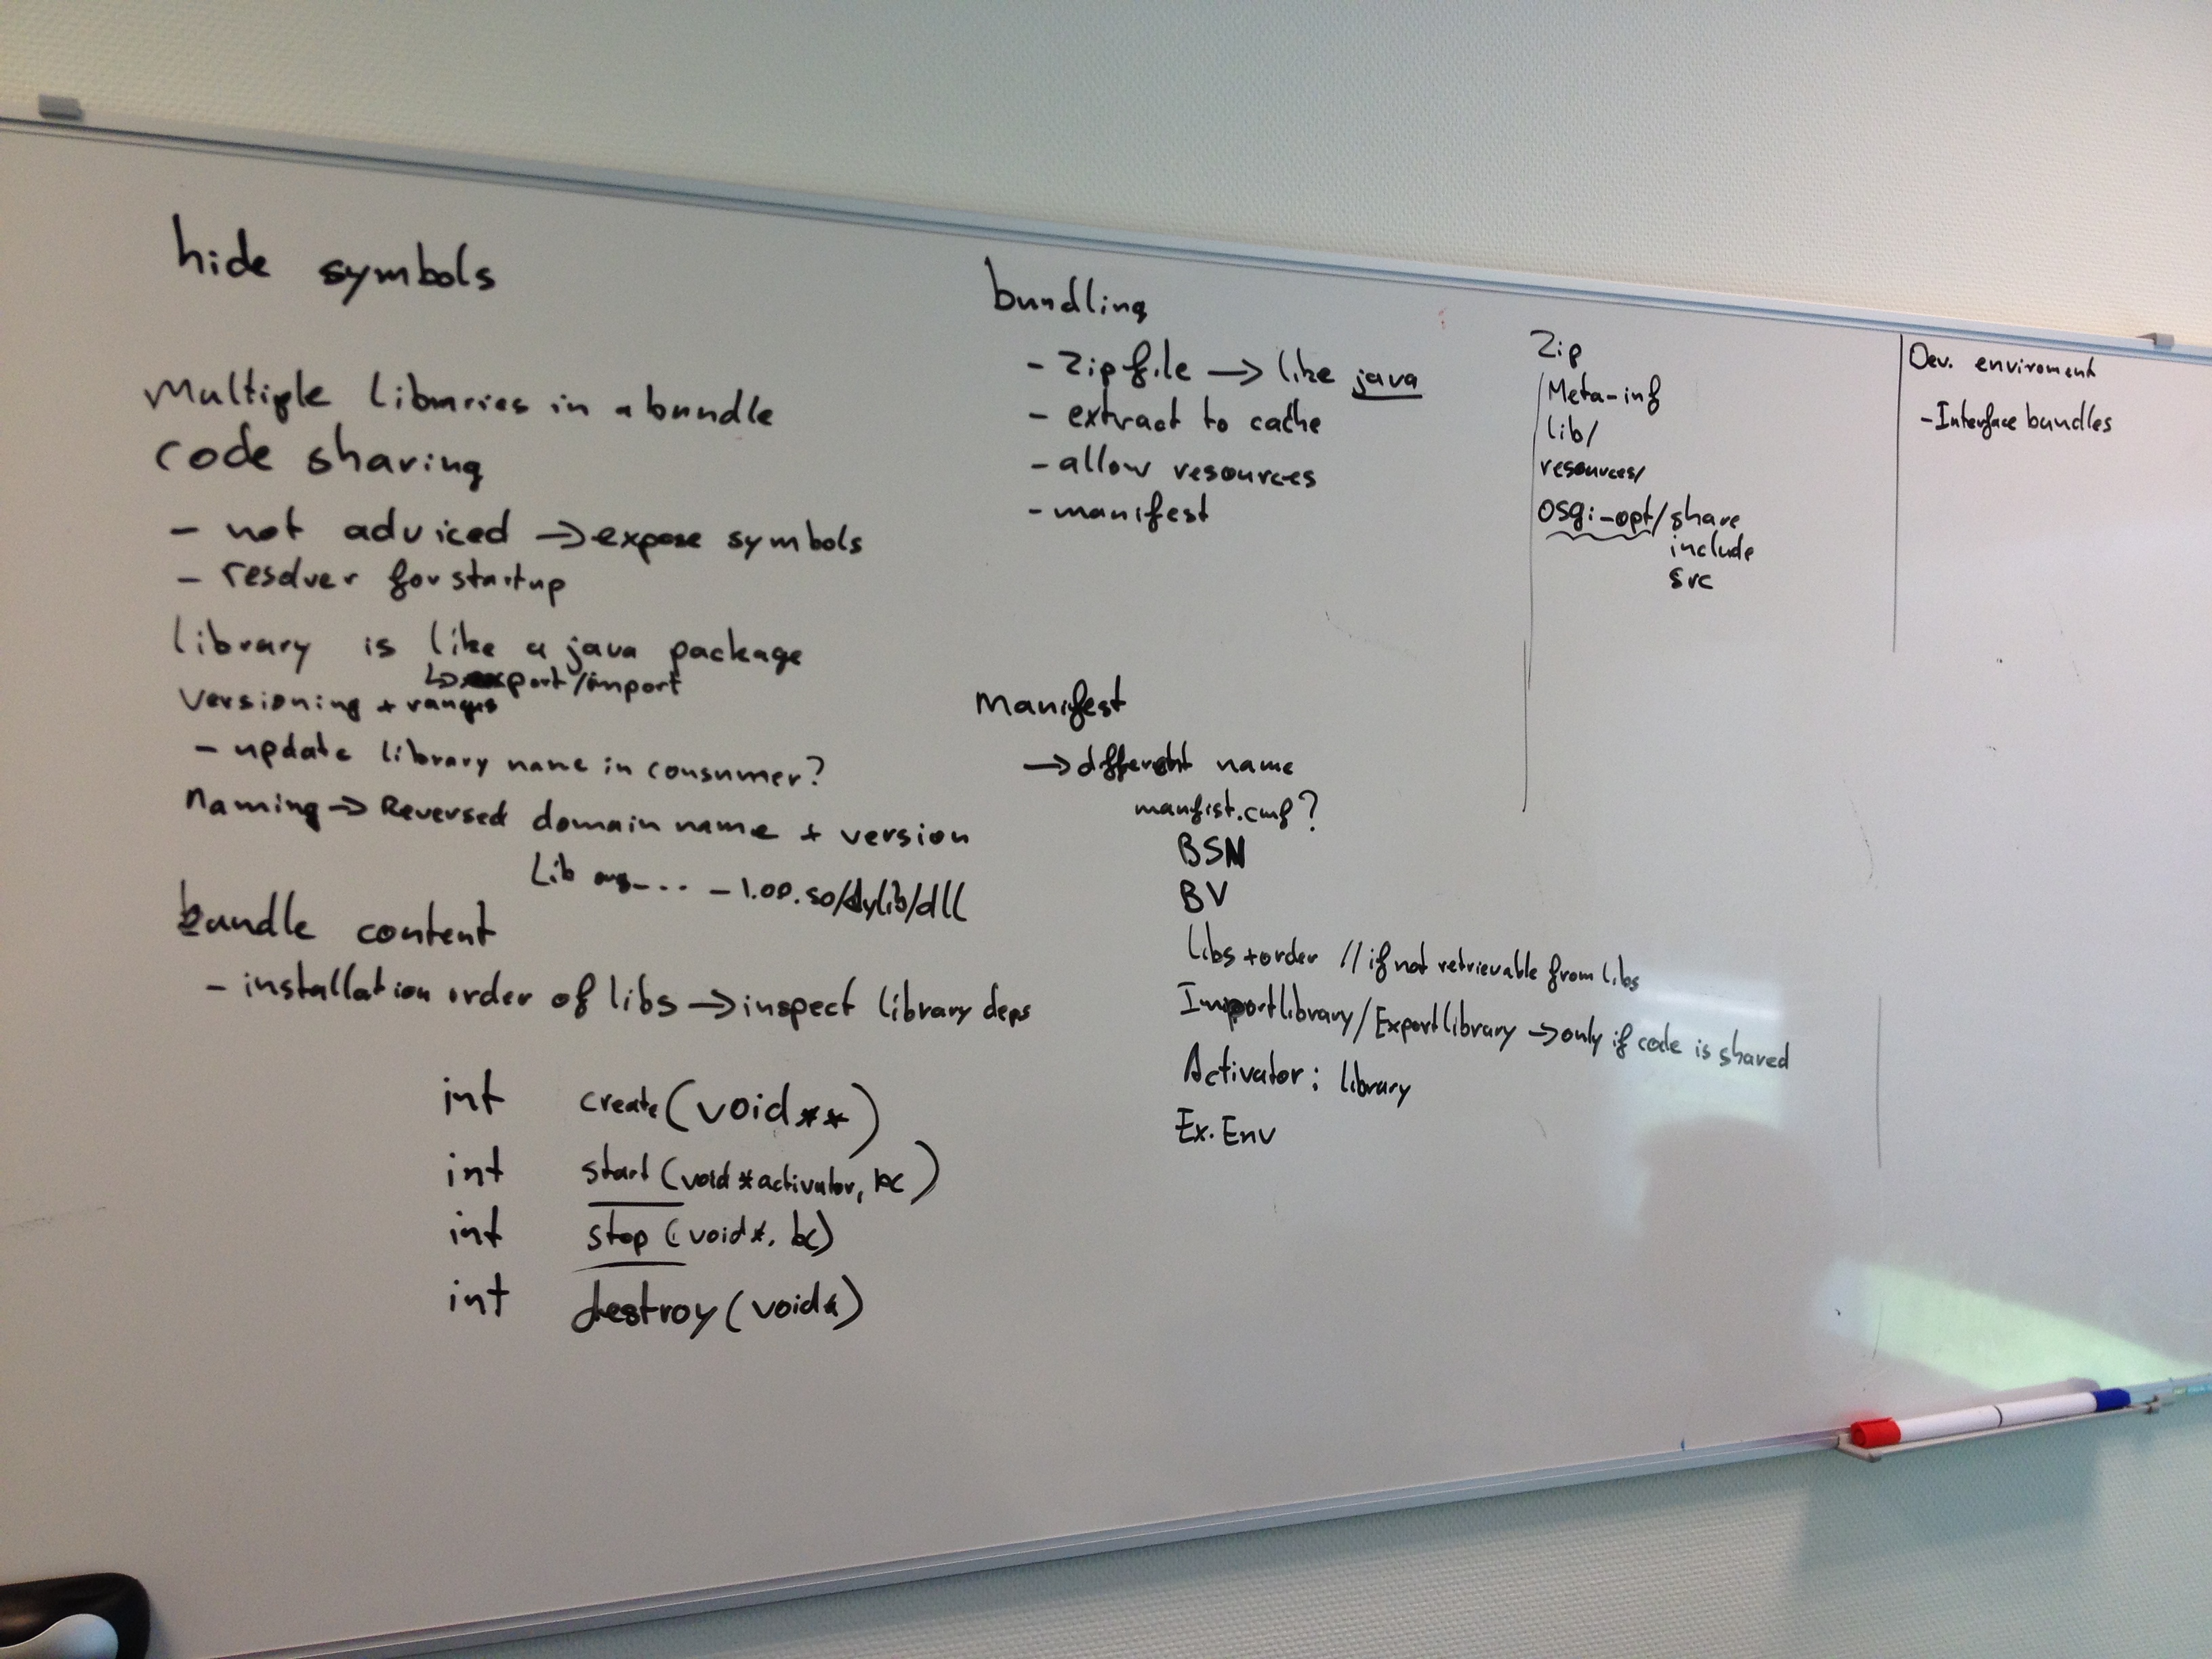 hide symbols
Multiple Libraries in a bundle
code sharing
- not adviced → expose symbols
- resolver for startup
library is like a java package
↳ export/import
Versioning + ranges
- update library name in consumer?
Naming → Reversed domain name + version
Lib org_... - 1.00.so/dylib/dll
bundle content
- installation order of libs → inspect library deps
int create(void**)
int start(void*activator, bc)
int stop(void*, bc)
int destroy(void*)
bundling
- Zip file → like java
- extract to cache
- allow resources
- manifest
Manifest
→ different name
manfist.cmf?
BSN
BV
Libs + order // if not retrievable from libs
Importlibrary/Exportlibrary → only if code is shared
Activator: library
Ex. Env
Zip
Meta-inf
lib/
resources/
OSGi-opt/share
include
src
Dev. enviroment
- Interface bundles